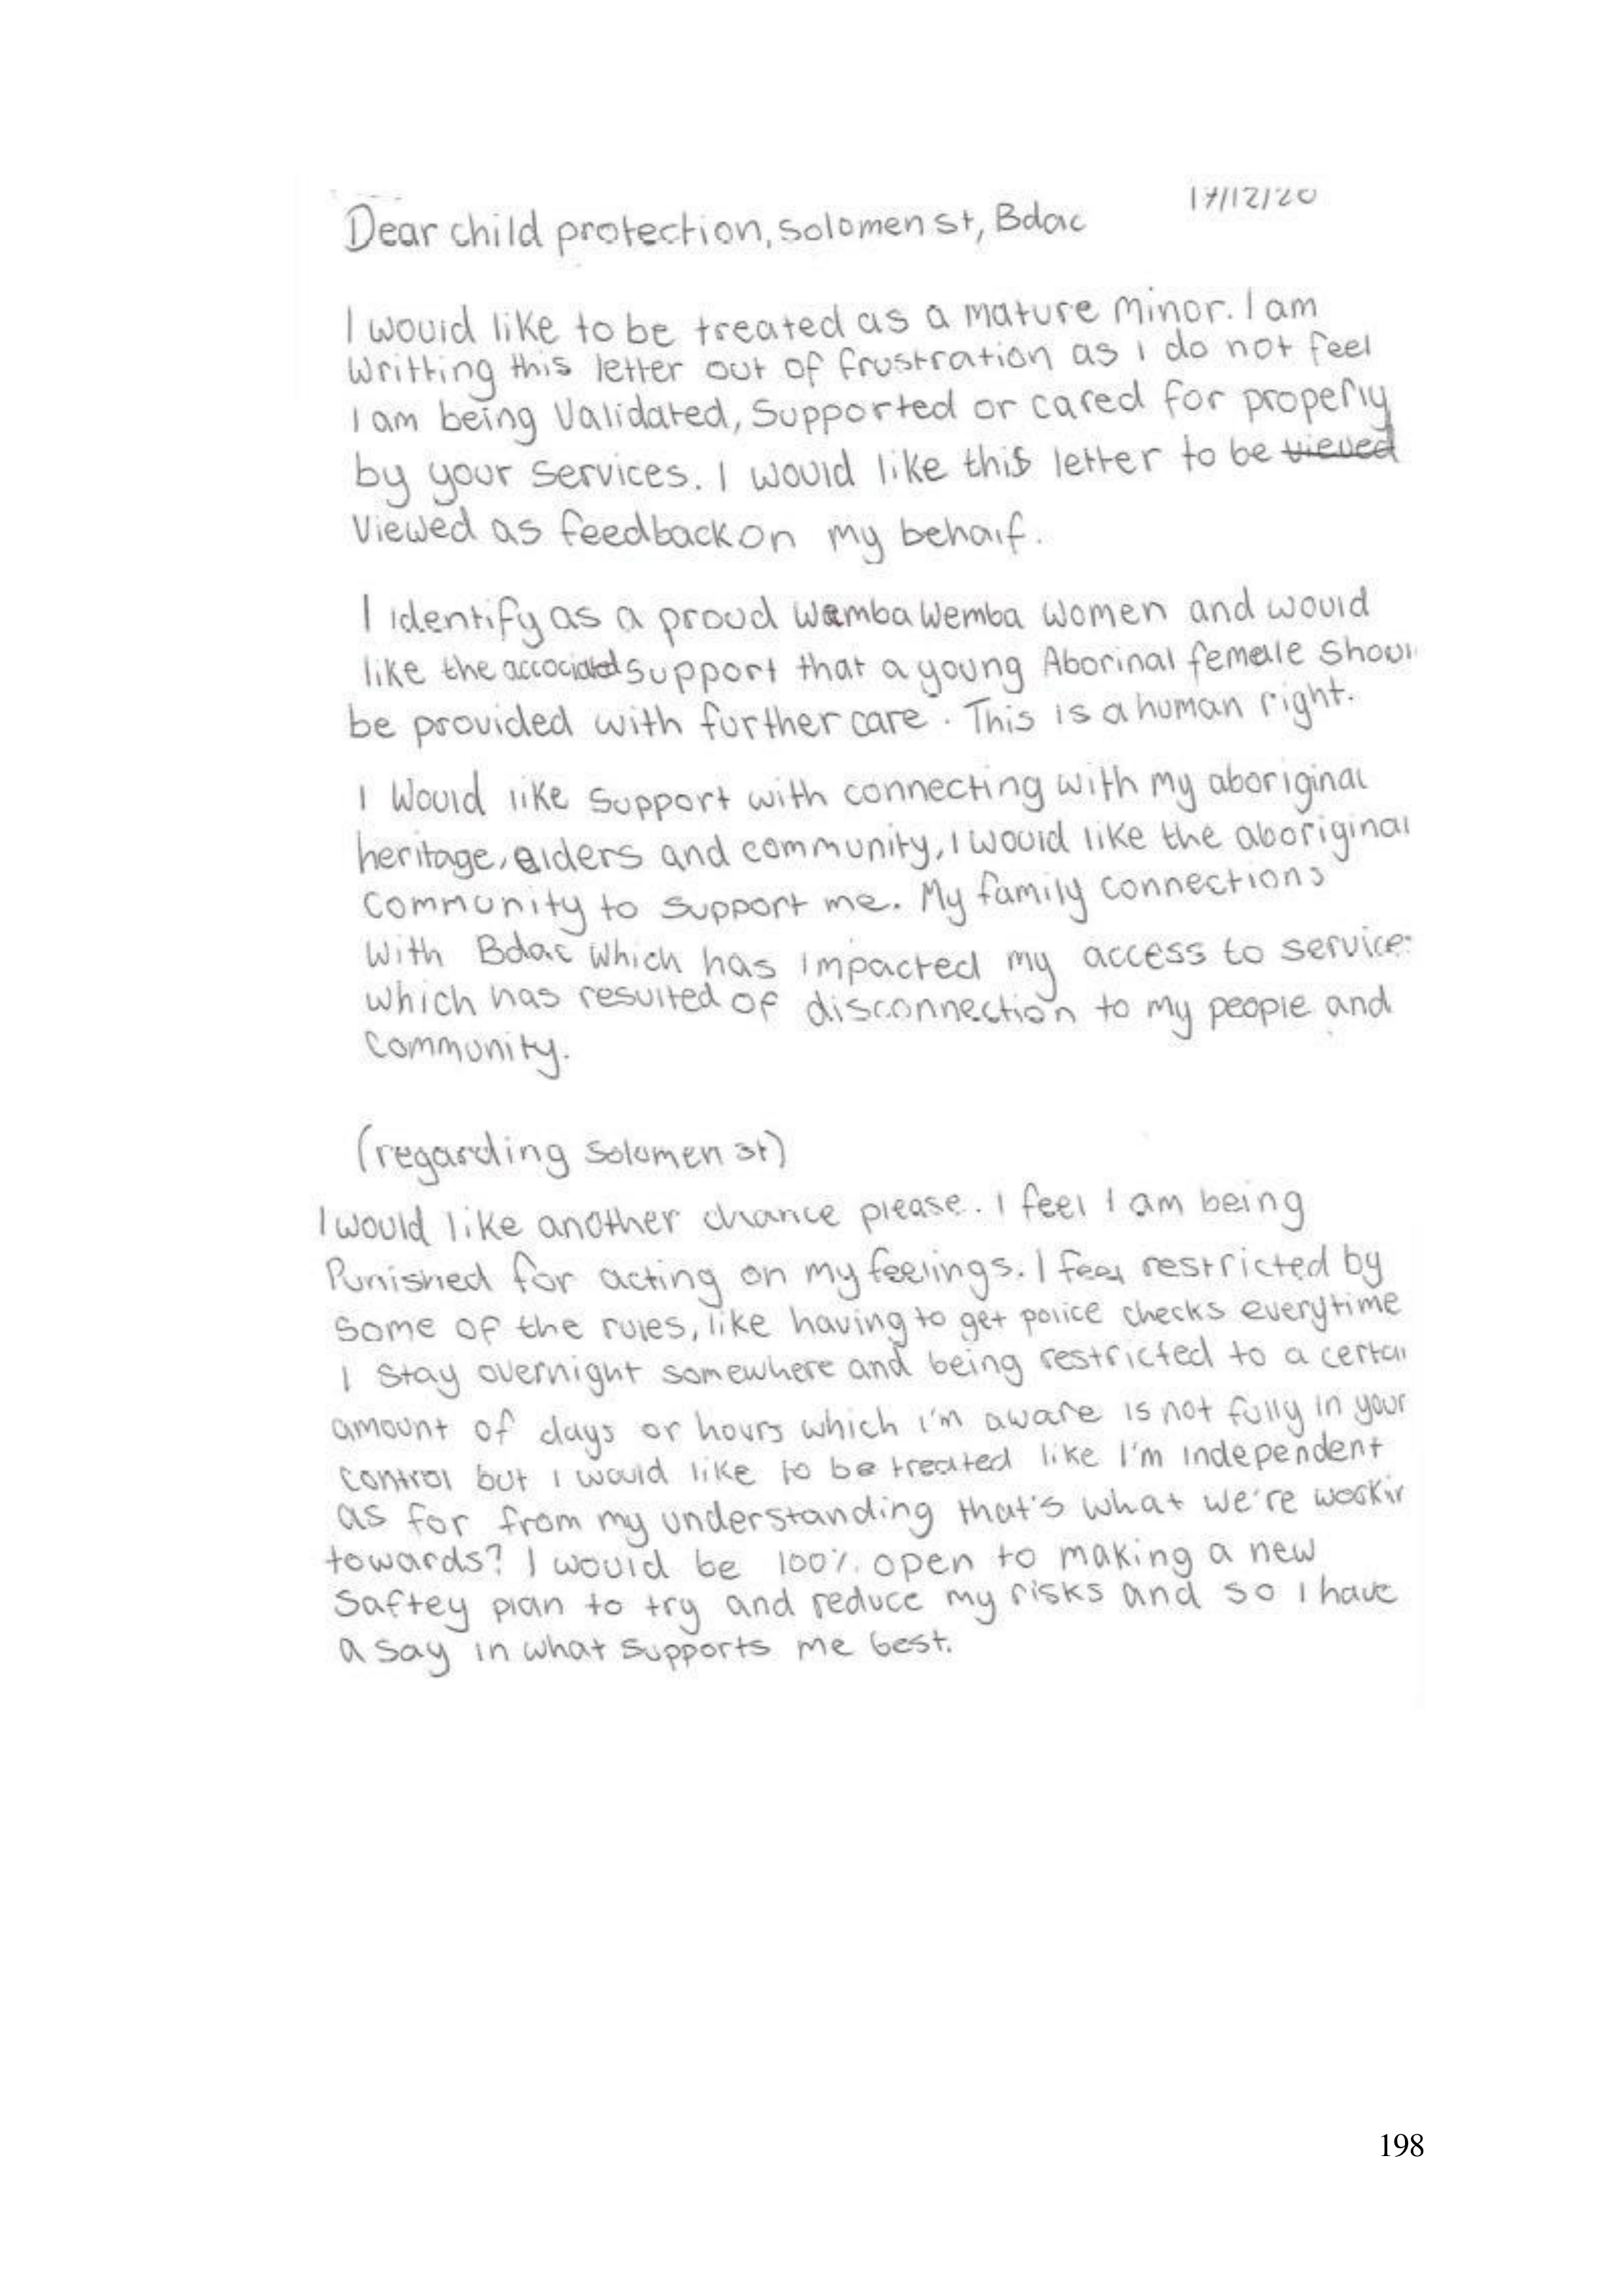 17/12/20
Dear child protection, solomen st, Bdac
I would like to be treated as a mature minor. I am
writting this letter out of frustration as i do not feel
I am being Validated, Supported or cared for properly
by your services. I would like this letter to be vieued
Viewed as feedback on my behalf.
I identify as a proud Wamba Wemba women and would
like the accociated support that a young Aborinal female shoul
be provided with further care. This is a human right.
I Would like support with connecting with my aboriginal
heritage, elders and community, I would like the aboriginal
community to support me. My family connections
With Bdac which has impacted my access to service
which has resulted of disconnection to my people and
Community.
(regarding solomen st)
I would like another chance please. I feel I am being
Punished for acting on my feelings. I feel restricted by
some of the rules, like having to get police checks everytime
I stay overnight somewhere and being restricted to a certai
amount of days or hours which i'm aware is not fully in your
control but i would like to be treated like I'm independent
as for from my understanding that's what we're workin
towards? I would be 100% open to making a new
Saftey plan to try and reduce my risks and so I have
a say in what supports me best.
198